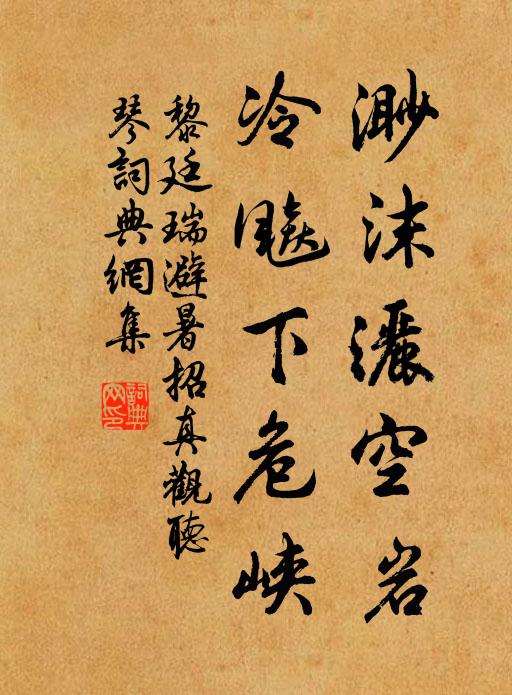 渺沫灑空岩
冷飈下危峽
黎廷瑞避暑招真觀聽
琴詞典網集
詞典
網印